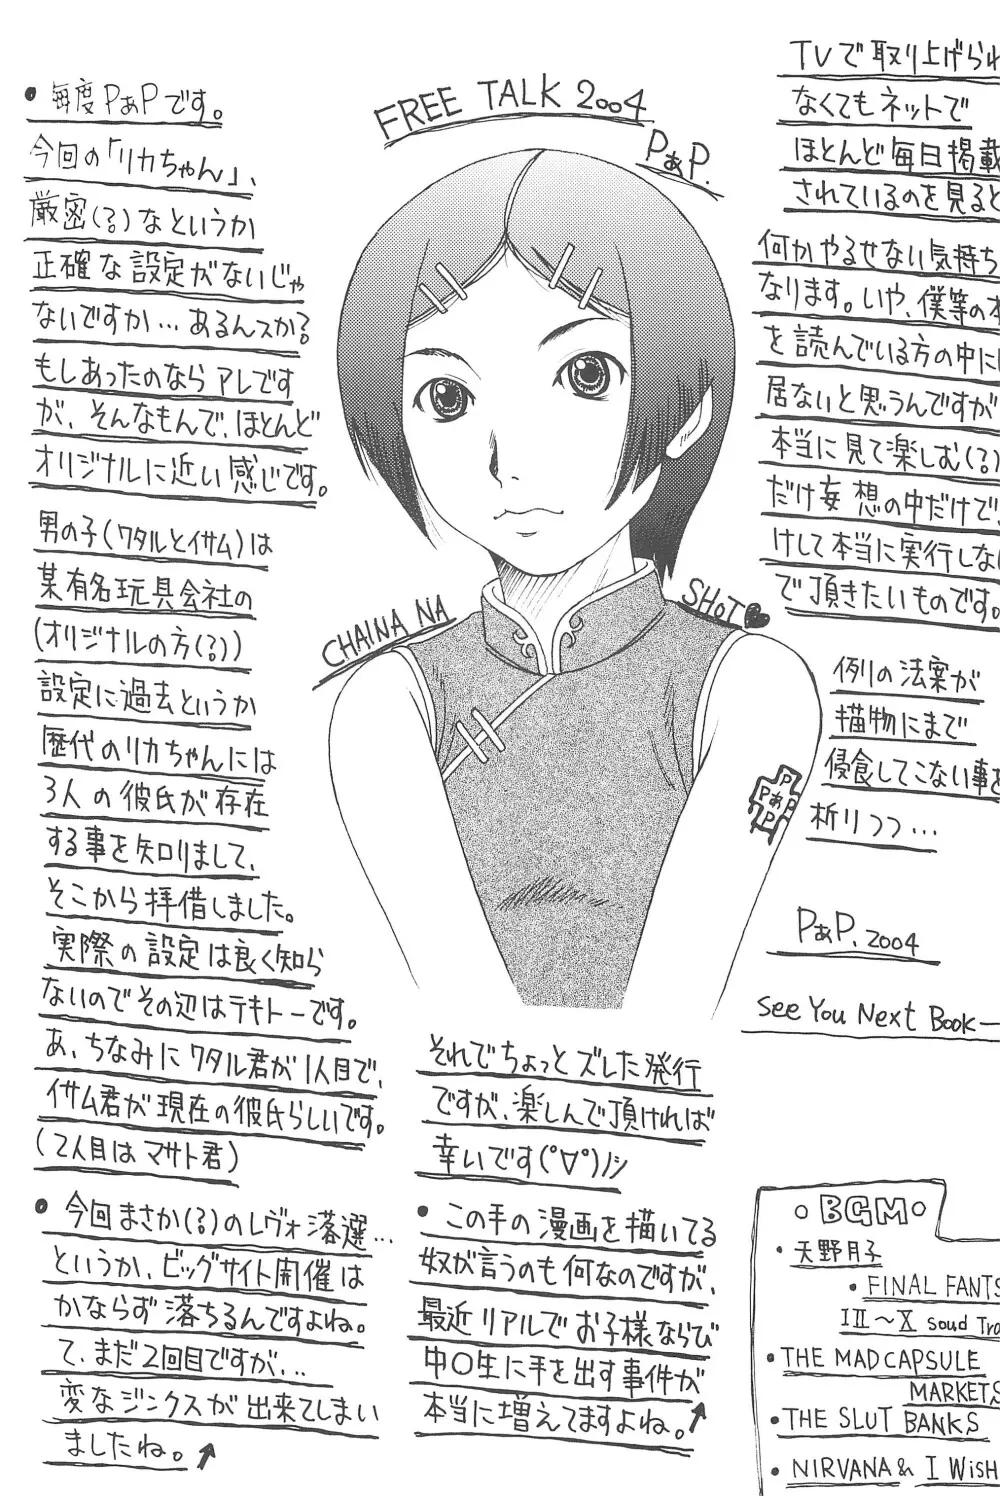 FREE TALK 2004
PぁP.
• 毎度PぁPです。
今回の「リカちゃん」、
厳密(?)なというか
正確な設定がないじゃ
ないですか…あるんスか?
もしあったのなら アレです
が、そんなもんで、ほとんど
オリジナルに近い感じです。
男の子(ワタルとイサム)は
某有名玩具会社の
(オリジナルの方(?))
設定に過去というか
歴代のリカちゃんには
3人の彼氏が存在
する事を知りまして、
そこから拝借しました。
実際の設定は良く知ら
ないのでその辺はテキトーです。
あ、ちなみにワタル君が1人目で、
イサム君が現在の彼氏らしいです。
(2人目はマサト君)
• 今回まさか(?)のレヴォ落選…
というか、ビッグサイト開催は
かならず落ちるんですよね。
て、まだ2回目ですが…
変なジンクスが出来てしまい
ましたね。↗
CHAINA NA
SHOT♥
PぁP
それでちょっとズレた発行
ですが、楽しんで頂ければ
幸いです(°∀°)ﾉｼ
• この手の漫画を描いてる
奴が言うのも何なのですが、
最近リアルでお子様ならび
中〇生に手を出す事件が
本当に増えてますよね。↗
TVで取り上げられ
なくてもネットで
ほとんど毎日掲載
されているのを見ると
何かやるせない気持ち
なります。いや、僕等の
を読んでいる方の中に
居ないと思うんですが
本当に見て楽しむ(?)
だけ妄想の中だけで、
けして本当に実行しない
で頂きたいものです。
例の法案が
描物にまで
侵食してこない事を
祈りつつ…
PぁP. 2004
See You Next Book—
○BGM○
• 天野月子
• FINAL FANTS
I II～X soud Tra
• THE MADCAPSULE
MARKETS
• THE SLUT BANKS
• NIRVANA & I WiSH